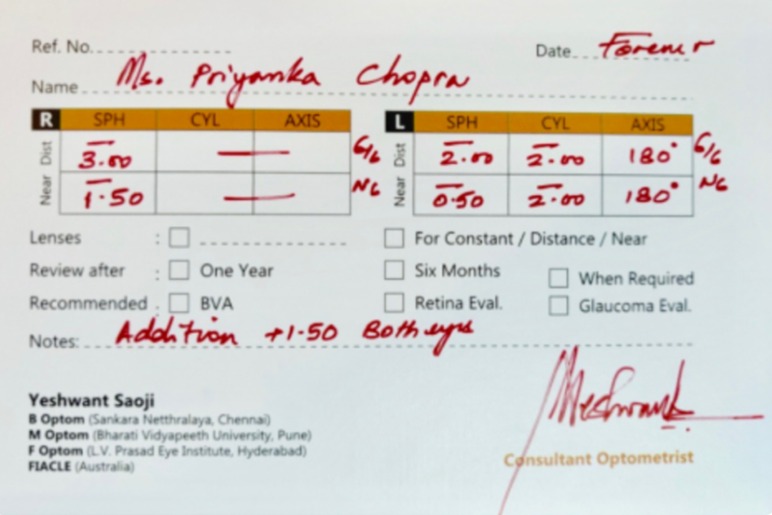 Ref. No. Date Forever
Name Ms. Priyanka Chopra
R SPH CYL AXIS L SPH CYL AXIS
Dist -3.00 — 6/6 Dist -2.00 -2.00 180° 6/6
Near -1.50 — N6 Near -0.50 -2.00 180° N6
Lenses : For Constant / Distance / Near
Review after : One Year Six Months When Required
Recommended : BVA Retina Eval. Glaucoma Eval.
Notes: Addition +1.50 Both eyes
Yeshwant Saoji
B Optom (Sankara Netthralaya, Chennai)
M Optom (Bharati Vidyapeeth University, Pune)
F Optom (L.V. Prasad Eye Institute, Hyderabad)
FIACLE (Australia)
Yeshwant
Consultant Optometrist